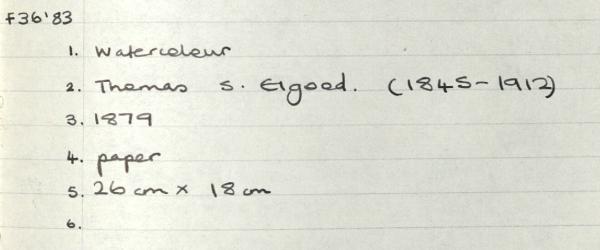 F36'83
1. Watercolour
2. Thomas S. Elgood. (1845-1912)
3. 1879
4. paper
5. 26 cm x 18 cm
6.